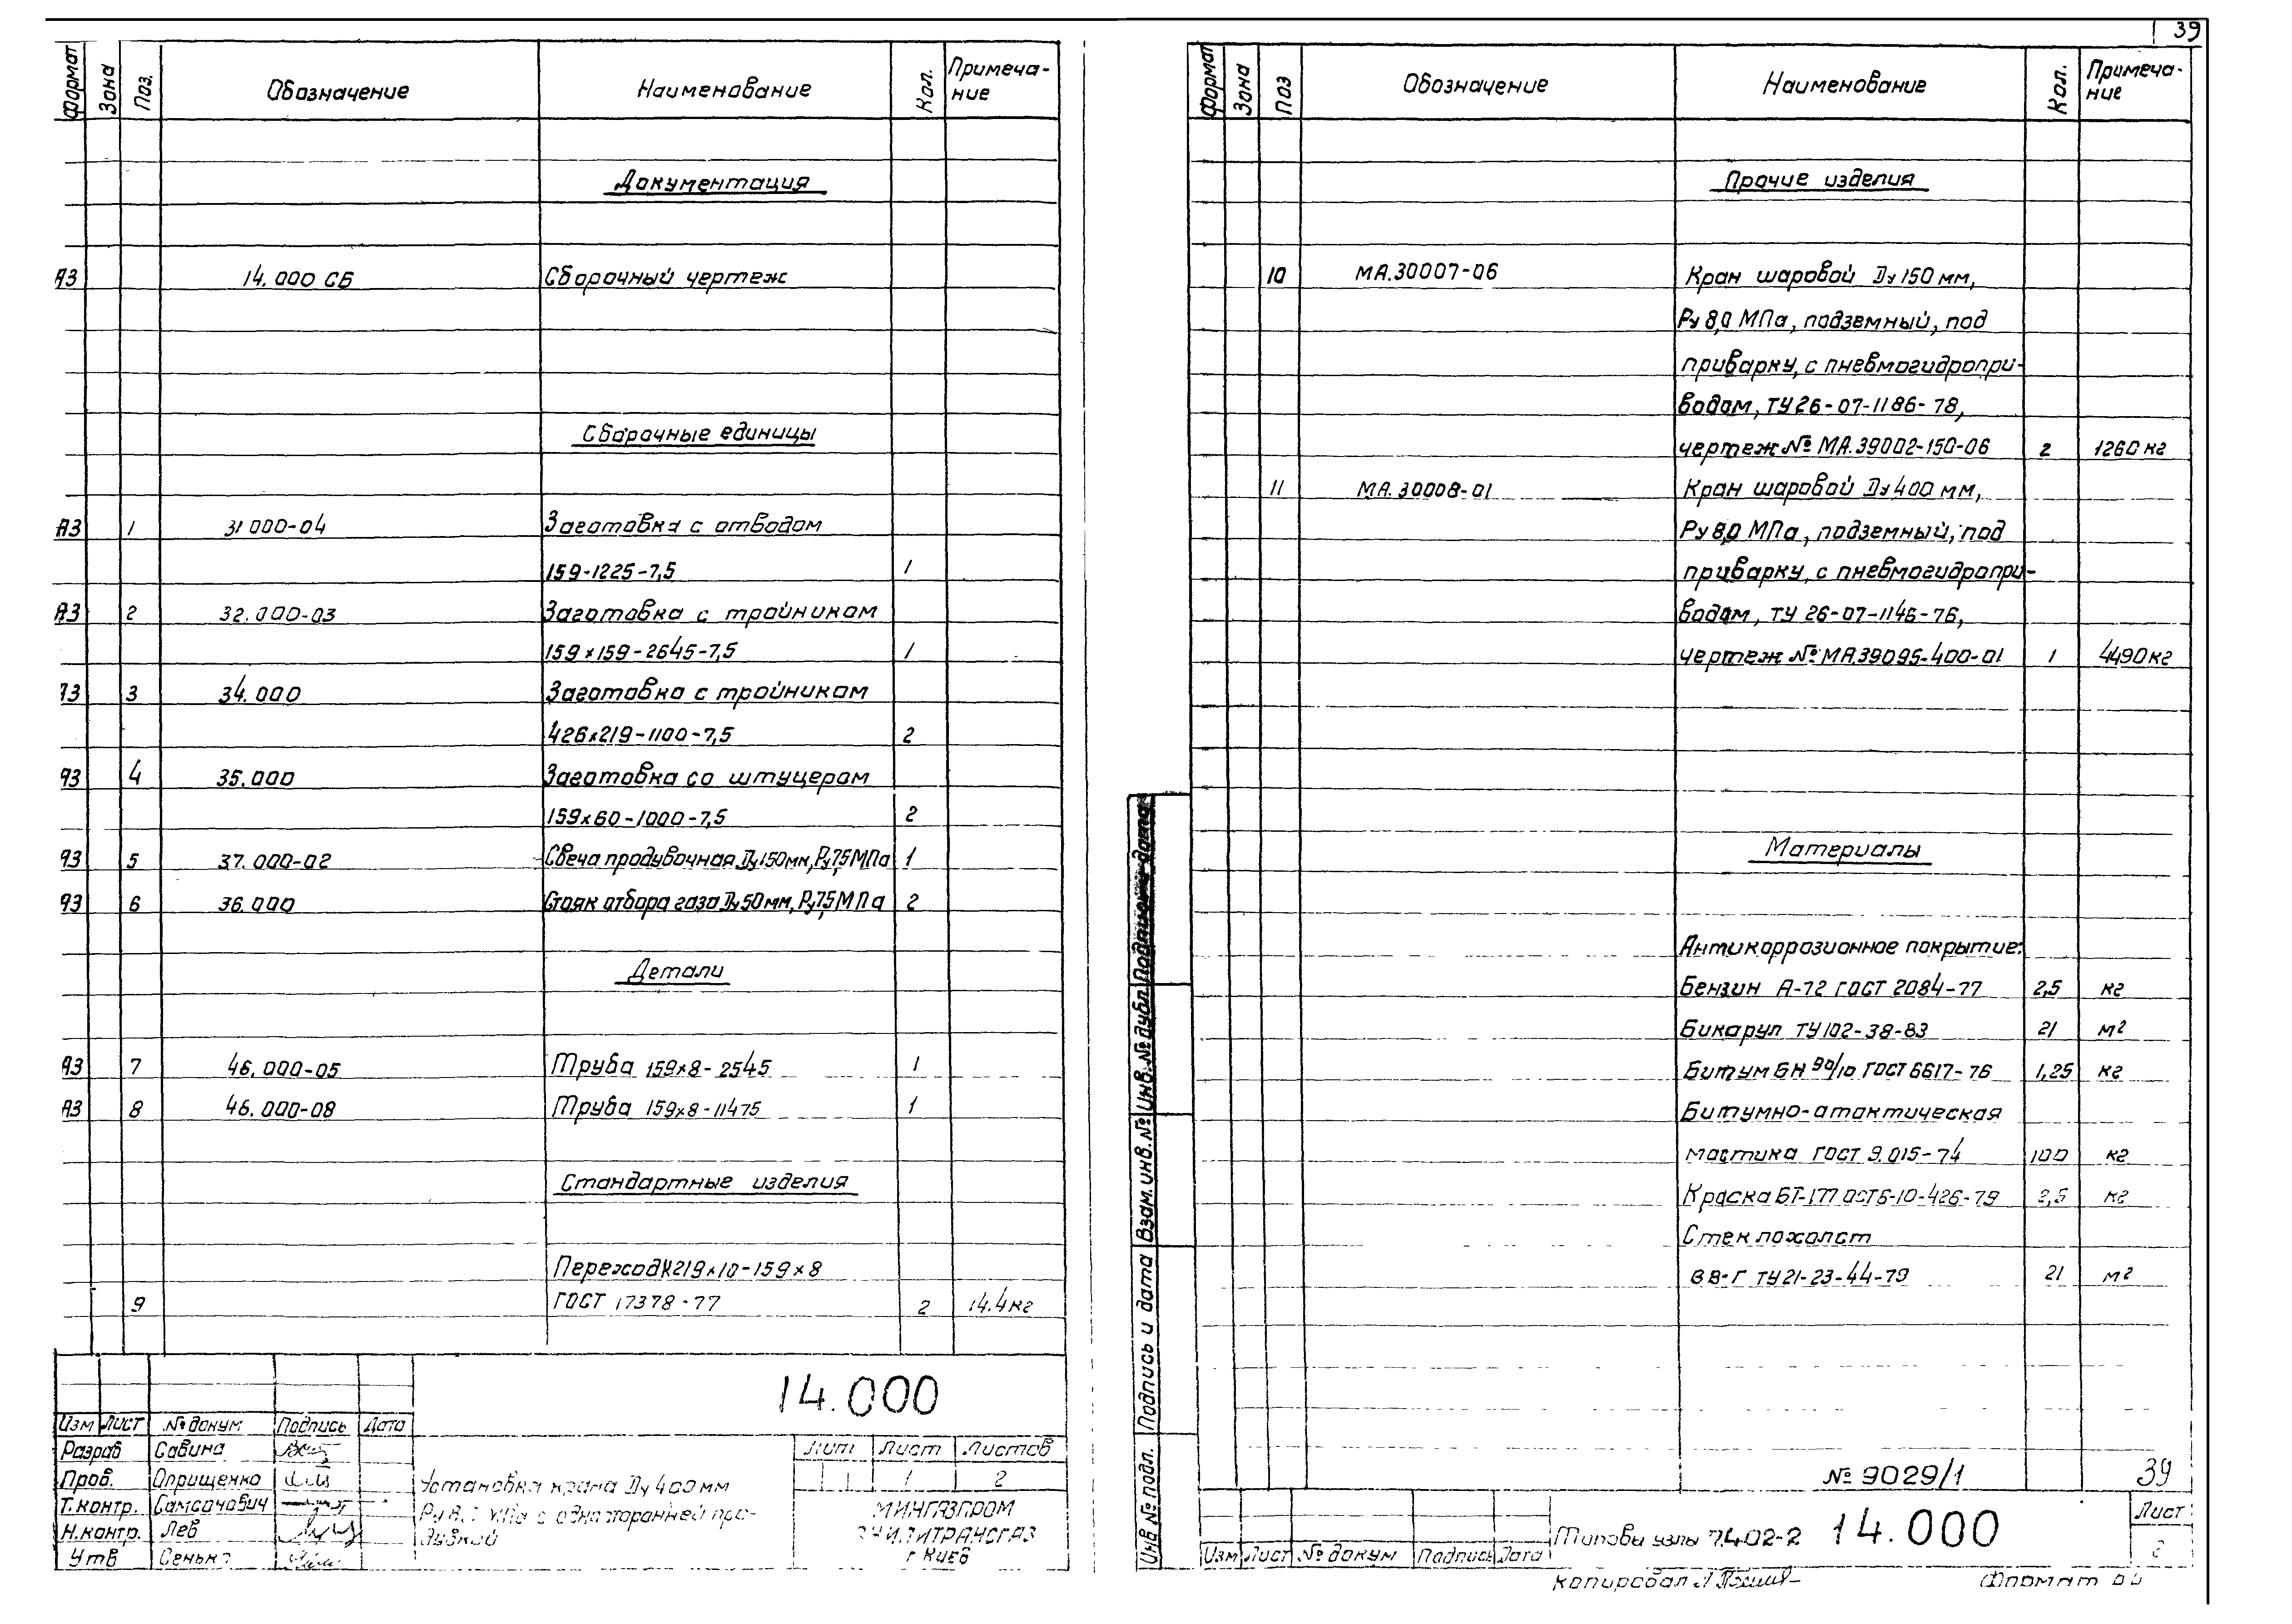 39
Формат Зона Поз. Обозначение Наименование Кол. Примеча-
ние
Документация
А3 14.000 СБ Сборочный чертеж
Сборочные единицы
А3 1 31 000-04 Заготовка с отводом
159-1225-7,5 1
А3 2 32.000-03 Заготовка с тройником
159×159-2645-7,5 1
А3 3 34.000 Заготовка с тройником
426×219-1100-7,5 2
А3 4 35.000 Заготовка со штуцером
159×60-1000-7,5 2
А3 5 37.000-02 Свеча продувочная Ду150мм, Ру7,5МПа 1
А3 6 36.000 Стояк отбора газа Ду50мм, Ру7,5МПа 2
Детали
А3 7 46.000-05 Труба 159×8-2545 1
А3 8 46.000-08 Труба 159×8-11475 1
Стандартные изделия
Переход К219×10-159×8
9 ГОСТ 17378-77 2 14.4кг
14.000
Изм Лист № докум Подпись Дата
Разраб Савина
Пров. Оприщенко
Т.контр. Самсонович
Н.контр. Лев
Утв Сенько
Установка крана Ду 400мм
Ру 8,0 МПа с односторонней про-
дувкой
Лит Лист Листов
1 2
МИНГАЗПРОМ
г Киев
Формат Зона Поз Обозначение Наименование Кол. Примеча-
ние
Прочие изделия
10 МА.30007-06 Кран шаровой Ду 150 мм,
Ру 8,0 МПа, подземный, под
приварку, с пневмогидропри-
водом, ТУ 26-07-1186-78,
чертеж № МА.39002-150-06 2 1260 кг
11 МА.30008-01 Кран шаровой Ду 400 мм,
Ру 8,0 МПа, подземный, под
приварку, с пневмогидропри-
водом, ТУ 26-07-1146-76,
чертеж № МА.39095-400-01 1 4490кг
Материалы
Антикоррозионное покрытие:
Бензин А-72 ГОСТ 2084-77 2,5 кг
Бикарул ТУ102-38-83 21 м²
Битум БН 90/10 ГОСТ 6617-76 1,25 кг
Битумно-атактическая
мастика ГОСТ 9.015-74 100 кг
Краска БТ-177 ОСТ6-10-426-79 2,5 кг
Стеклохолст
ВВ-Г ТУ21-23-44-79 21 м²
Инв № подл. Подпись и дата Взам. инв. № Инв. № дубл Подпись и дата
№ 9029/1 39
Изм Лист № докум Подпись Дата
Типовы узлы 7.402-2 14.000
Лист
2
Копировал Формат